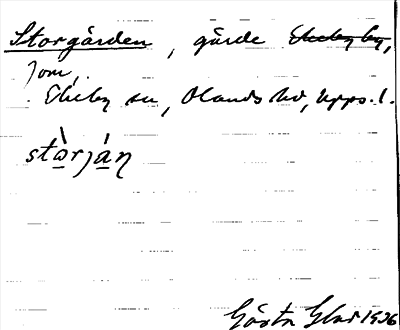 Storgården, gärde Ekeby by,
Ekeby sn, Olands hd, Upps. l.
stὼrjáŋ
Gösta 1936